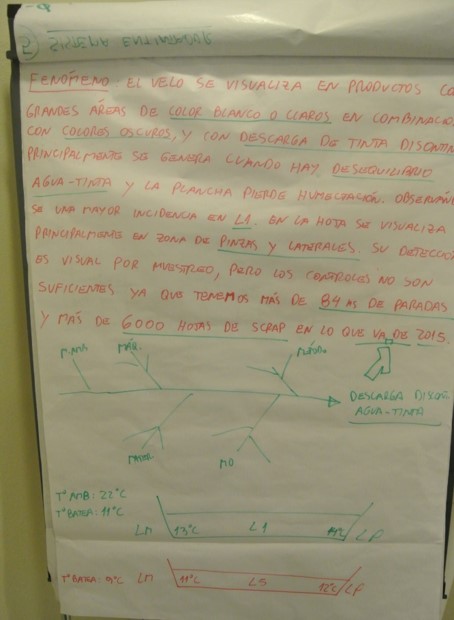 2 SISTEMA ENTINTADOR
FENÓMENO: EL VELO SE VISUALIZA EN PRODUCTOS CO
GRANDES ÁREAS DE COLOR BLANCO O CLAROS EN COMBINACIO
CON COLORES OSCUROS, Y CON DESCARGA DE TINTA DISCONTIN
PRINCIPALMENTE SE GENERA CUANDO HAY DESEQUILIBRIO
AGUA-TINTA Y LA PLANCHA PIERDE HUMECTACIÓN. OBSERVÁN
SE UNA MAYOR INCIDENCIA EN L1. EN LA HOJA SE VISUALIZA
PRINCIPALMENTE EN ZONA DE PINZAS Y LATERALES. SU DETECCIO
ES VISUAL POR MUESTREO, PERO LOS CONTROLES NO SON
SUFICIENTES YA QUE TENEMOS MÁS DE 84 HS DE PARADAS
Y MÁS DE 6000 HOJAS DE SCRAP EN LO QUE VA DE 2015.
MÁQ.
DESCARGA DISCO
AGUA-TINTA
MO
Tº AMB: 22ºC
Tº BATEA: 11ºC
LM 13ºC L1 LP
Tº BATEA: 9ºC LM 11ºC L5 12ºC LP